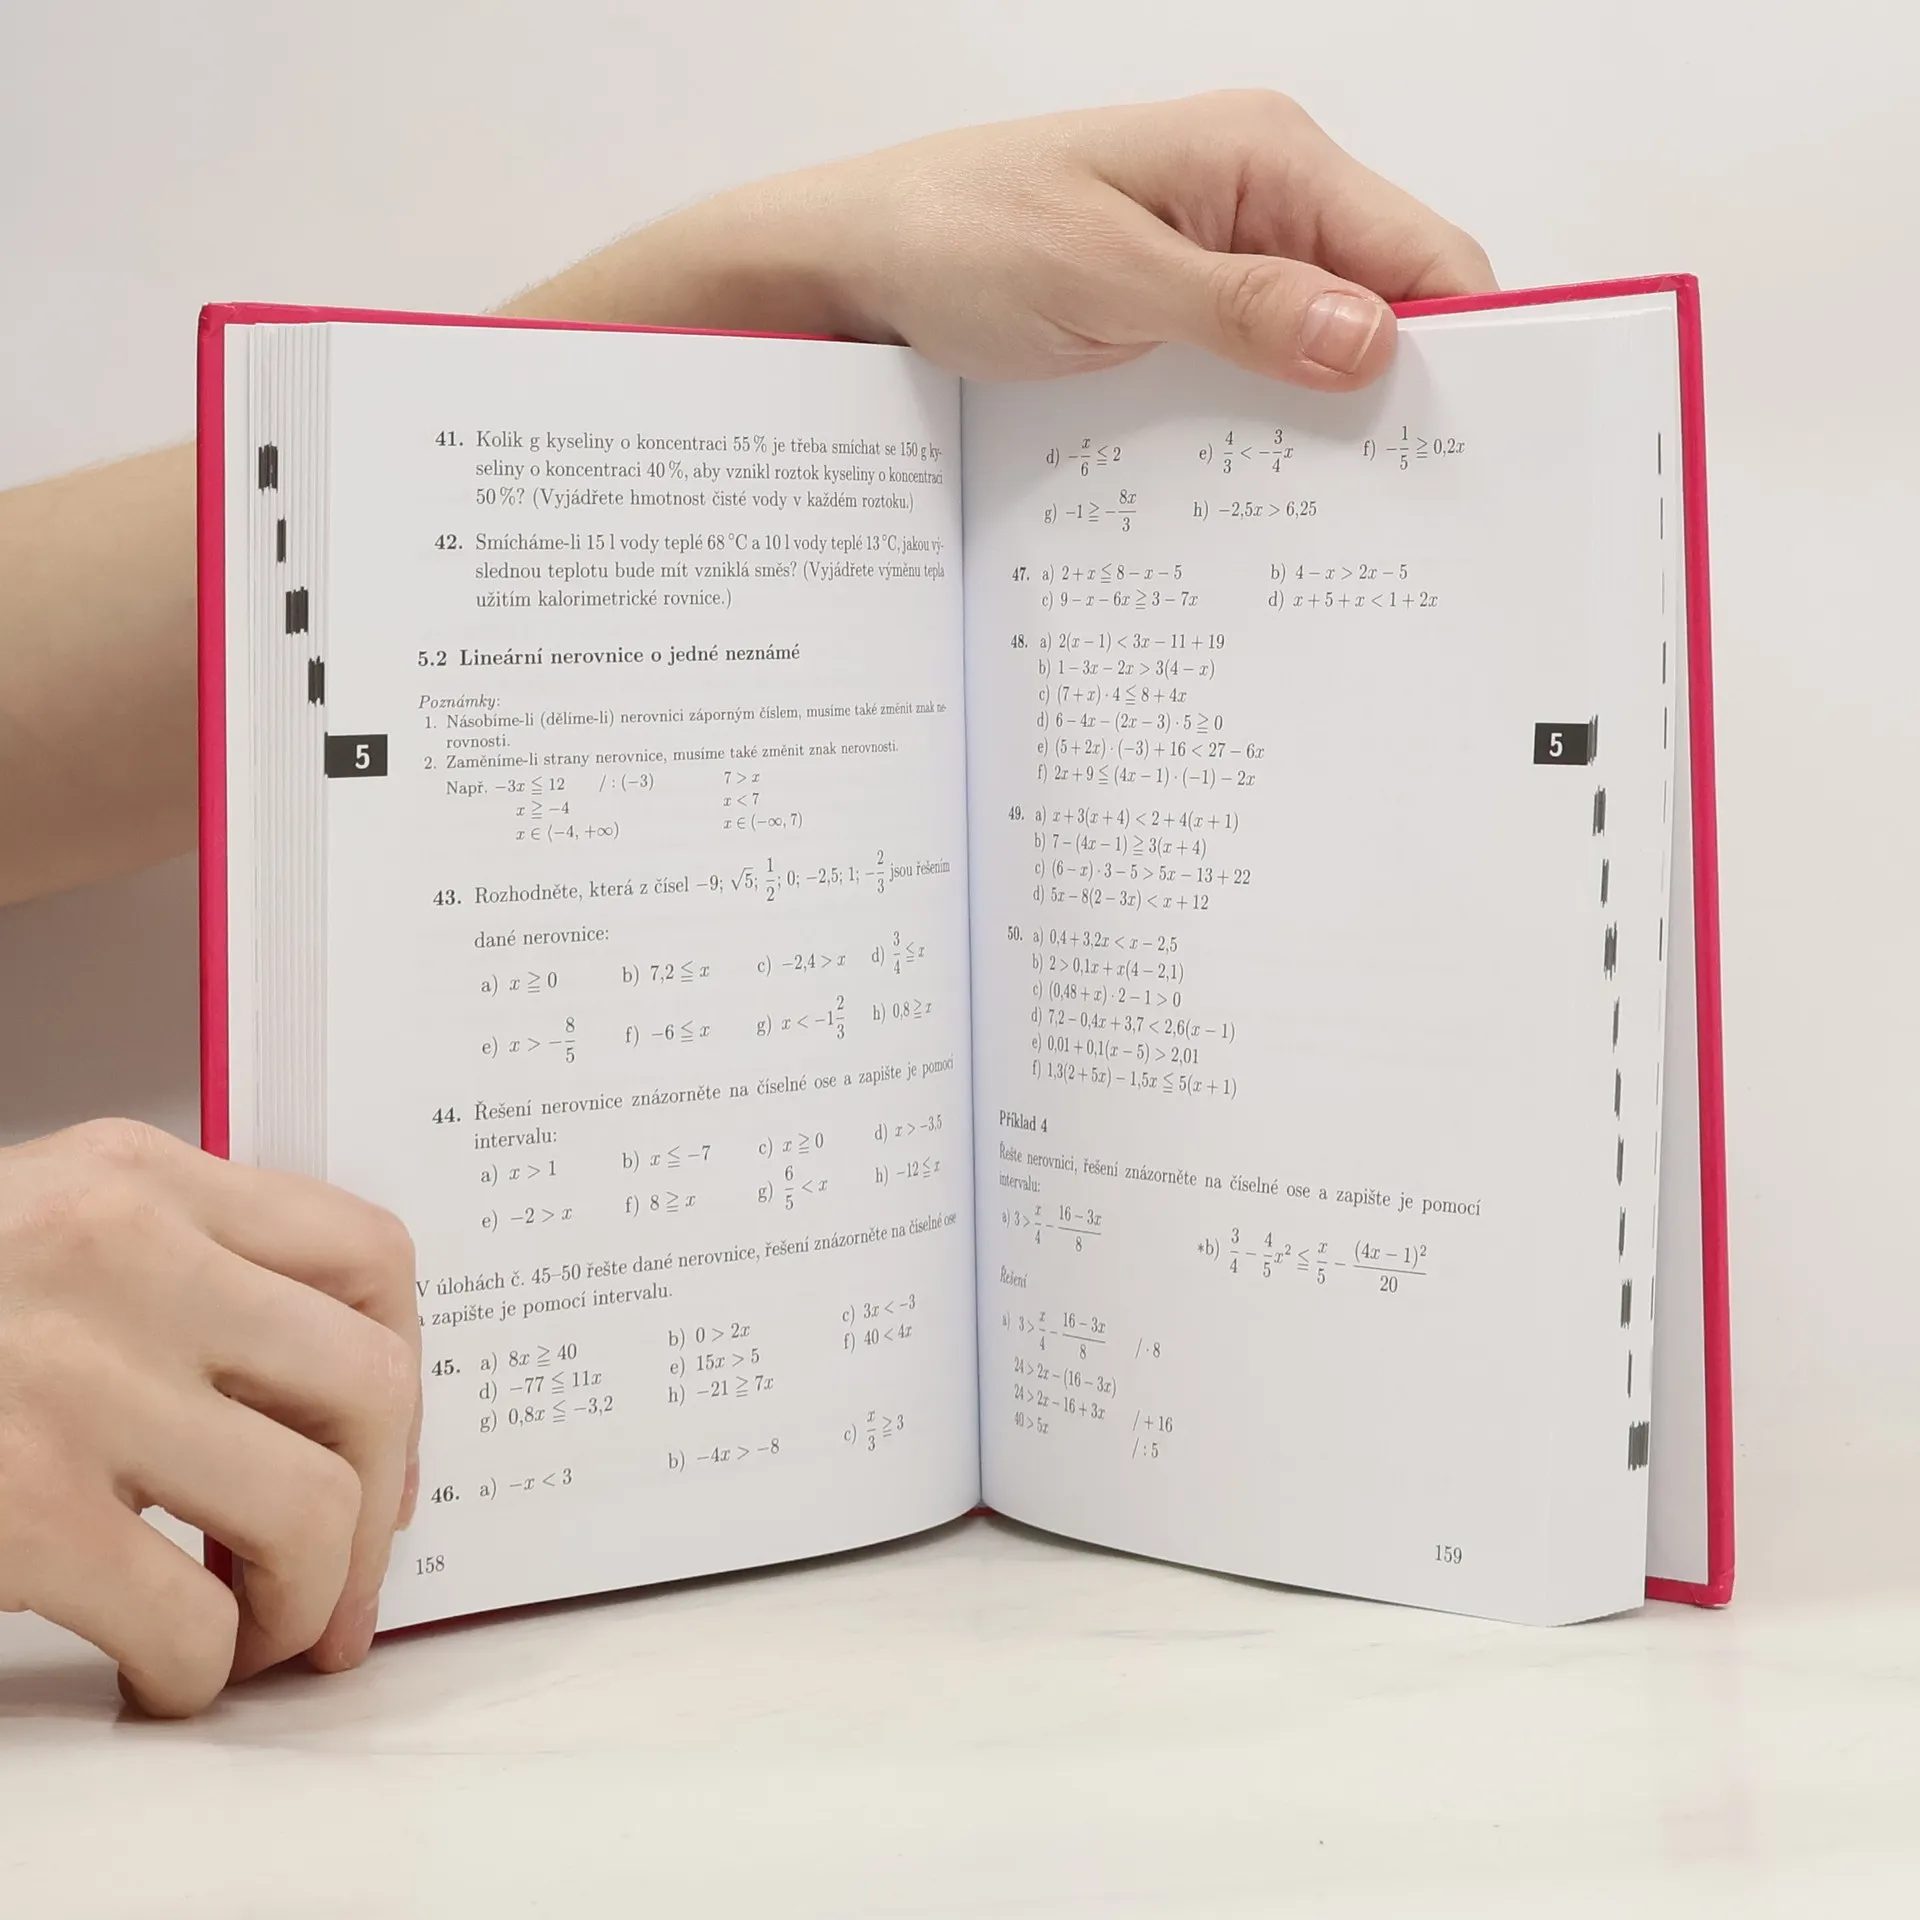 41. Kolik g kyseliny o koncentraci 55 % je třeba smíchat se 150 g ky-
seliny o koncentraci 40 %, aby vznikl roztok kyseliny o koncentraci
50 %? (Vyjádřete hmotnost čisté vody v každém roztoku.)
42. Smícháme-li 15 l vody teplé 68 °C a 10 l vody teplé 13 °C, jakou vý-
slednou teplotu bude mít vzniklá směs? (Vyjádřete výměnu tepla
užitím kalorimetrické rovnice.)
5.2 Lineární nerovnice o jedné neznámé
Poznámky:
1. Násobíme-li (dělíme-li) nerovnici záporným číslem, musíme také změnit znak ne-
rovnosti.
5
2. Zaměníme-li strany nerovnice, musíme také změnit znak nerovnosti.
Např. −3x ≦ 12 / : (−3) 7 > x
x ≧ −4 x < 7
x ∈ ⟨−4, +∞) x ∈ (−∞, 7)
43. Rozhodněte, která z čísel −9; √5; 1/2; 0; −2,5; 1; −2/3 jsou řešením
dané nerovnice:
a) x ≧ 0 b) 7,2 ≦ x c) −2,4 > x d) 3/4 ≦ x
e) x > −8/5 f) −6 ≦ x g) x < −1 2/3 h) 0,8 ≧ x
44. Řešení nerovnice znázorněte na číselné ose a zapište je pomocí
intervalu:
a) x > 1 b) x ≦ −7 c) x ≧ 0 d) x > −3,5
e) −2 > x f) 8 ≧ x g) 6/5 < x h) −12 ≦ x
V úlohách č. 45–50 řešte dané nerovnice, řešení znázorněte na číselné ose
a zapište je pomocí intervalu.
45. a) 8x ≧ 40 b) 0 > 2x c) 3x < −3
d) −77 ≦ 11x e) 15x > 5 f) 40 < 4x
g) 0,8x ≦ −3,2 h) −21 ≧ 7x
46. a) −x < 3 b) −4x > −8 c) x/3 ≧ 3
158
d) −x/6 ≦ 2 e) 4/3 < −3/4 x f) −1/5 ≧ 0,2x
g) −1 ≧ −8x/3 h) −2,5x > 6,25
47. a) 2 + x ≦ 8 − x − 5 b) 4 − x > 2x − 5
c) 9 − x − 6x ≧ 3 − 7x d) x + 5 + x < 1 + 2x
48. a) 2(x − 1) < 3x − 11 + 19
b) 1 − 3x − 2x > 3(4 − x)
c) (7 + x) · 4 ≦ 8 + 4x
d) 6 − 4x − (2x − 3) · 5 ≧ 0
e) (5 + 2x) · (−3) + 16 < 27 − 6x
f) 2x + 9 ≦ (4x − 1) · (−1) − 2x
5
49. a) x + 3(x + 4) < 2 + 4(x + 1)
b) 7 − (4x − 1) ≧ 3(x + 4)
c) (6 − x) · 3 − 5 > 5x − 13 + 22
d) 5x − 8(2 − 3x) < x + 12
50. a) 0,4 + 3,2x < x − 2,5
b) 2 > 0,1x + x(4 − 2,1)
c) (0,48 + x) · 2 − 1 > 0
d) 7,2 − 0,4x + 3,7 < 2,6(x − 1)
e) 0,01 + 0,1(x − 5) > 2,01
f) 1,3(2 + 5x) − 1,5x ≦ 5(x + 1)
Příklad 4
Řešte nerovnici, řešení znázorněte na číselné ose a zapište je pomocí
intervalu:
a) 3 > x/4 − (16 − 3x)/8 *b) 3/4 − 4/5 x² ≦ x/5 − (4x − 1)²/20
Řešení
a) 3 > x/4 − (16 − 3x)/8 / · 8
24 > 2x − (16 − 3x)
24 > 2x − 16 + 3x / + 16
40 > 5x / : 5
159